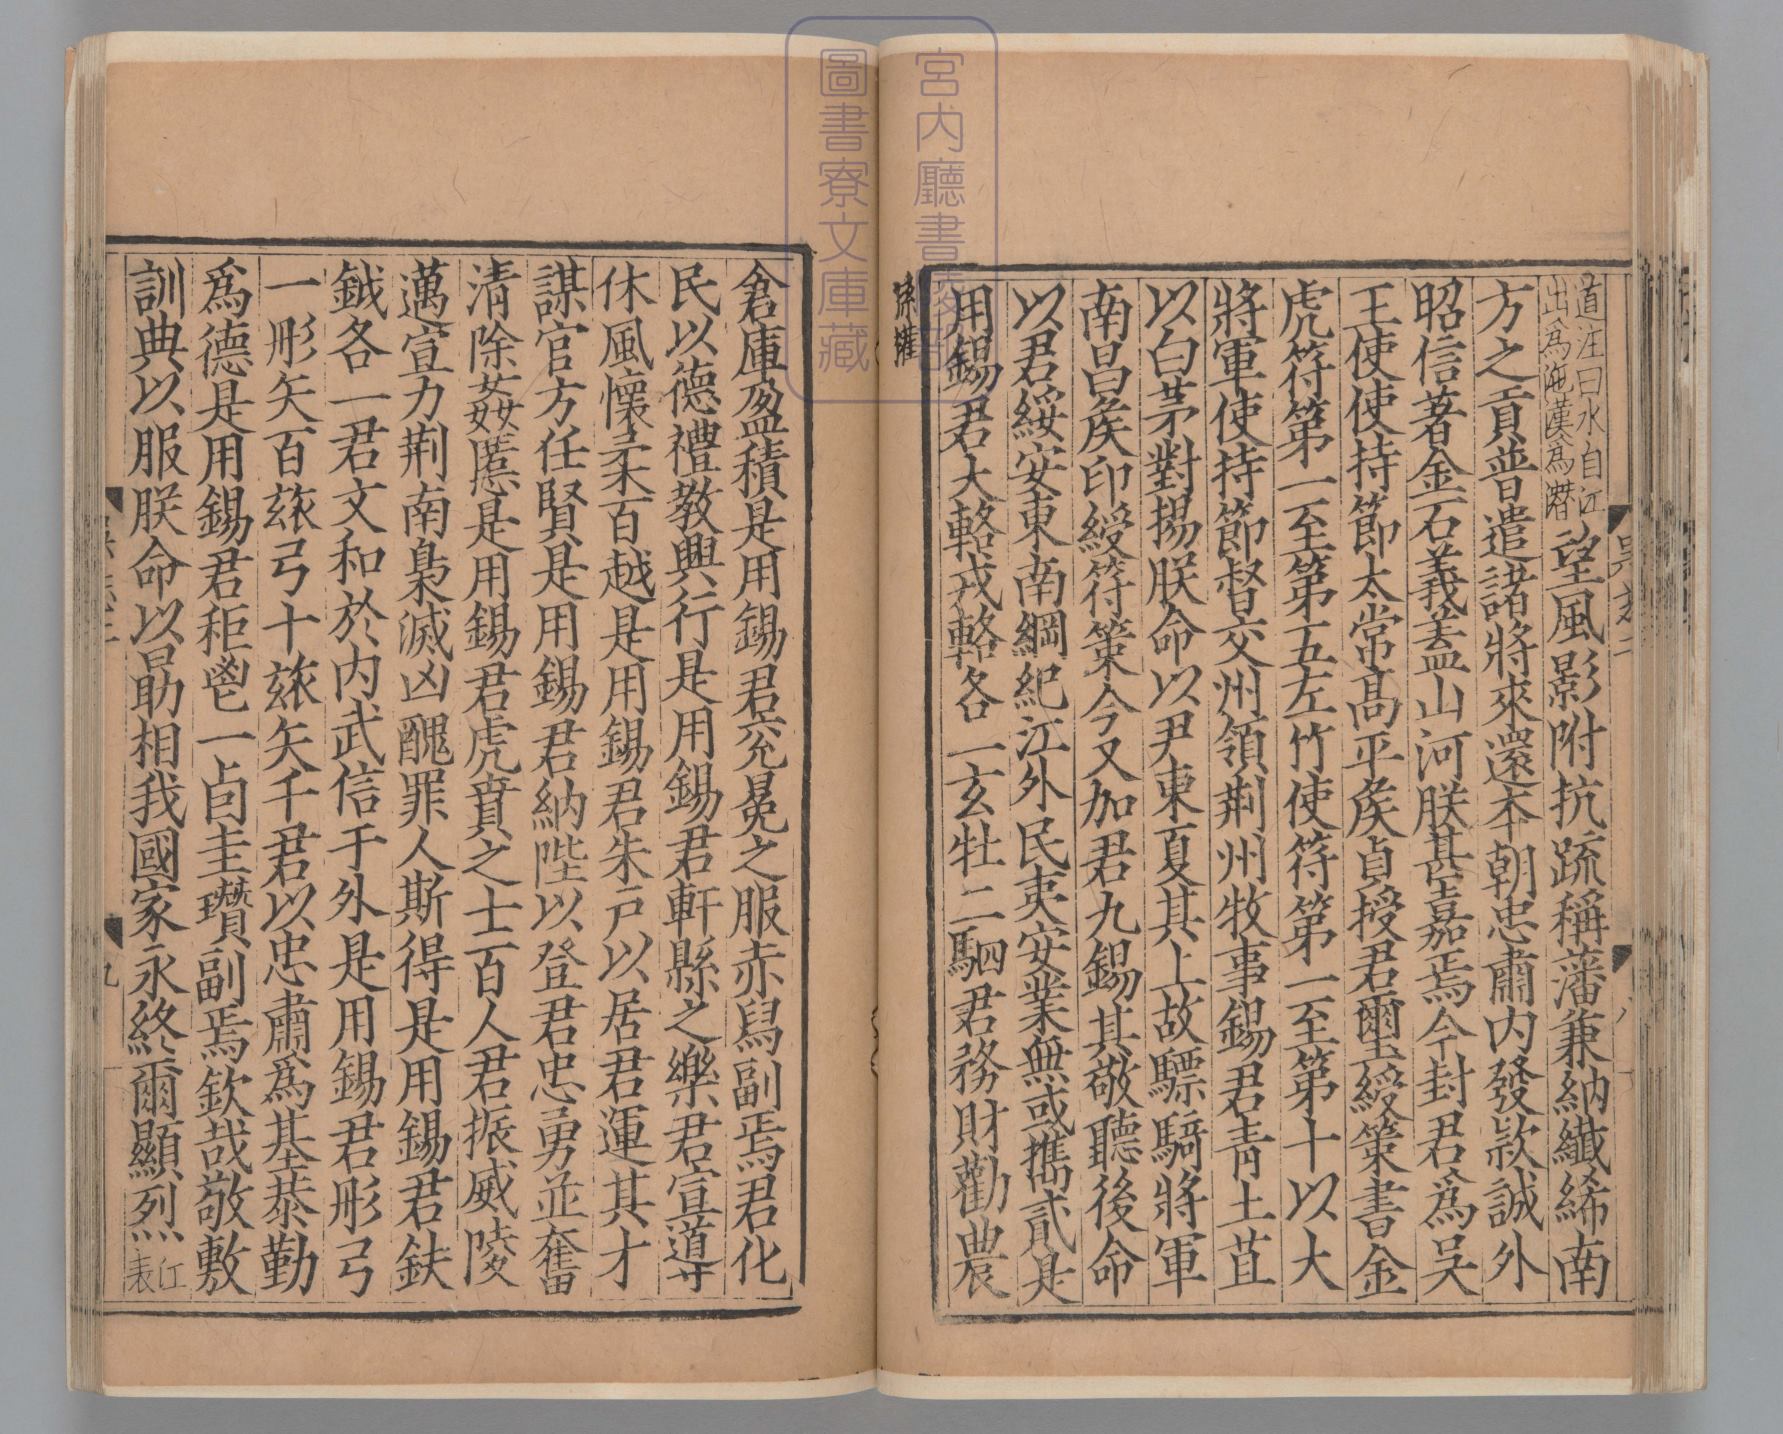 道注曰水自江
出爲沲漢爲濳
望風影附抗疏稱藩兼納纎絺南
方之貢普遣諸將來還本朝忠肅内發欵誠外
昭信著金石義蓋山河朕甚嘉焉今封君爲吴
王使使持節太常髙平矦貞授君璽綬策書金
虎符第一至第五左竹使符第一至第十以大
將軍使持節督交州領荆州牧事錫君青土苴
以白茅對揚朕命以尹東夏其上故驃騎將軍
南昌矦印綬符策今又加君九錫其敬聽後命
以君綏安東南綱紀江外民夷安業無或攜貳是
用錫君大輅戎輅各一玄牡二駟君務財勸農
孫權
倉庫盈積是用錫君衮冕之服赤舄副焉君化
民以德禮教興行是用錫君軒縣之樂君宣導
休風懷柔百越是用錫君朱戸以居君運其才
謀官方任賢是用錫君納陛以登君忠勇並奮
清除姦慝是用錫君虎賁之士百人君振威陵
邁宣力荆南梟滅凶醜罪人斯得是用錫君鈇
鉞各一君文和於内武信于外是用錫君彤弓
一彤矢百玈弓十玈矢千君以忠肅爲基恭勤
爲德是用錫君秬鬯一卣圭瓚副焉欽哉敬敷
訓典以服朕命以勗相我國家永終爾顯烈
江
表
九
宮内廳書陵部
圖書寮文庫藏